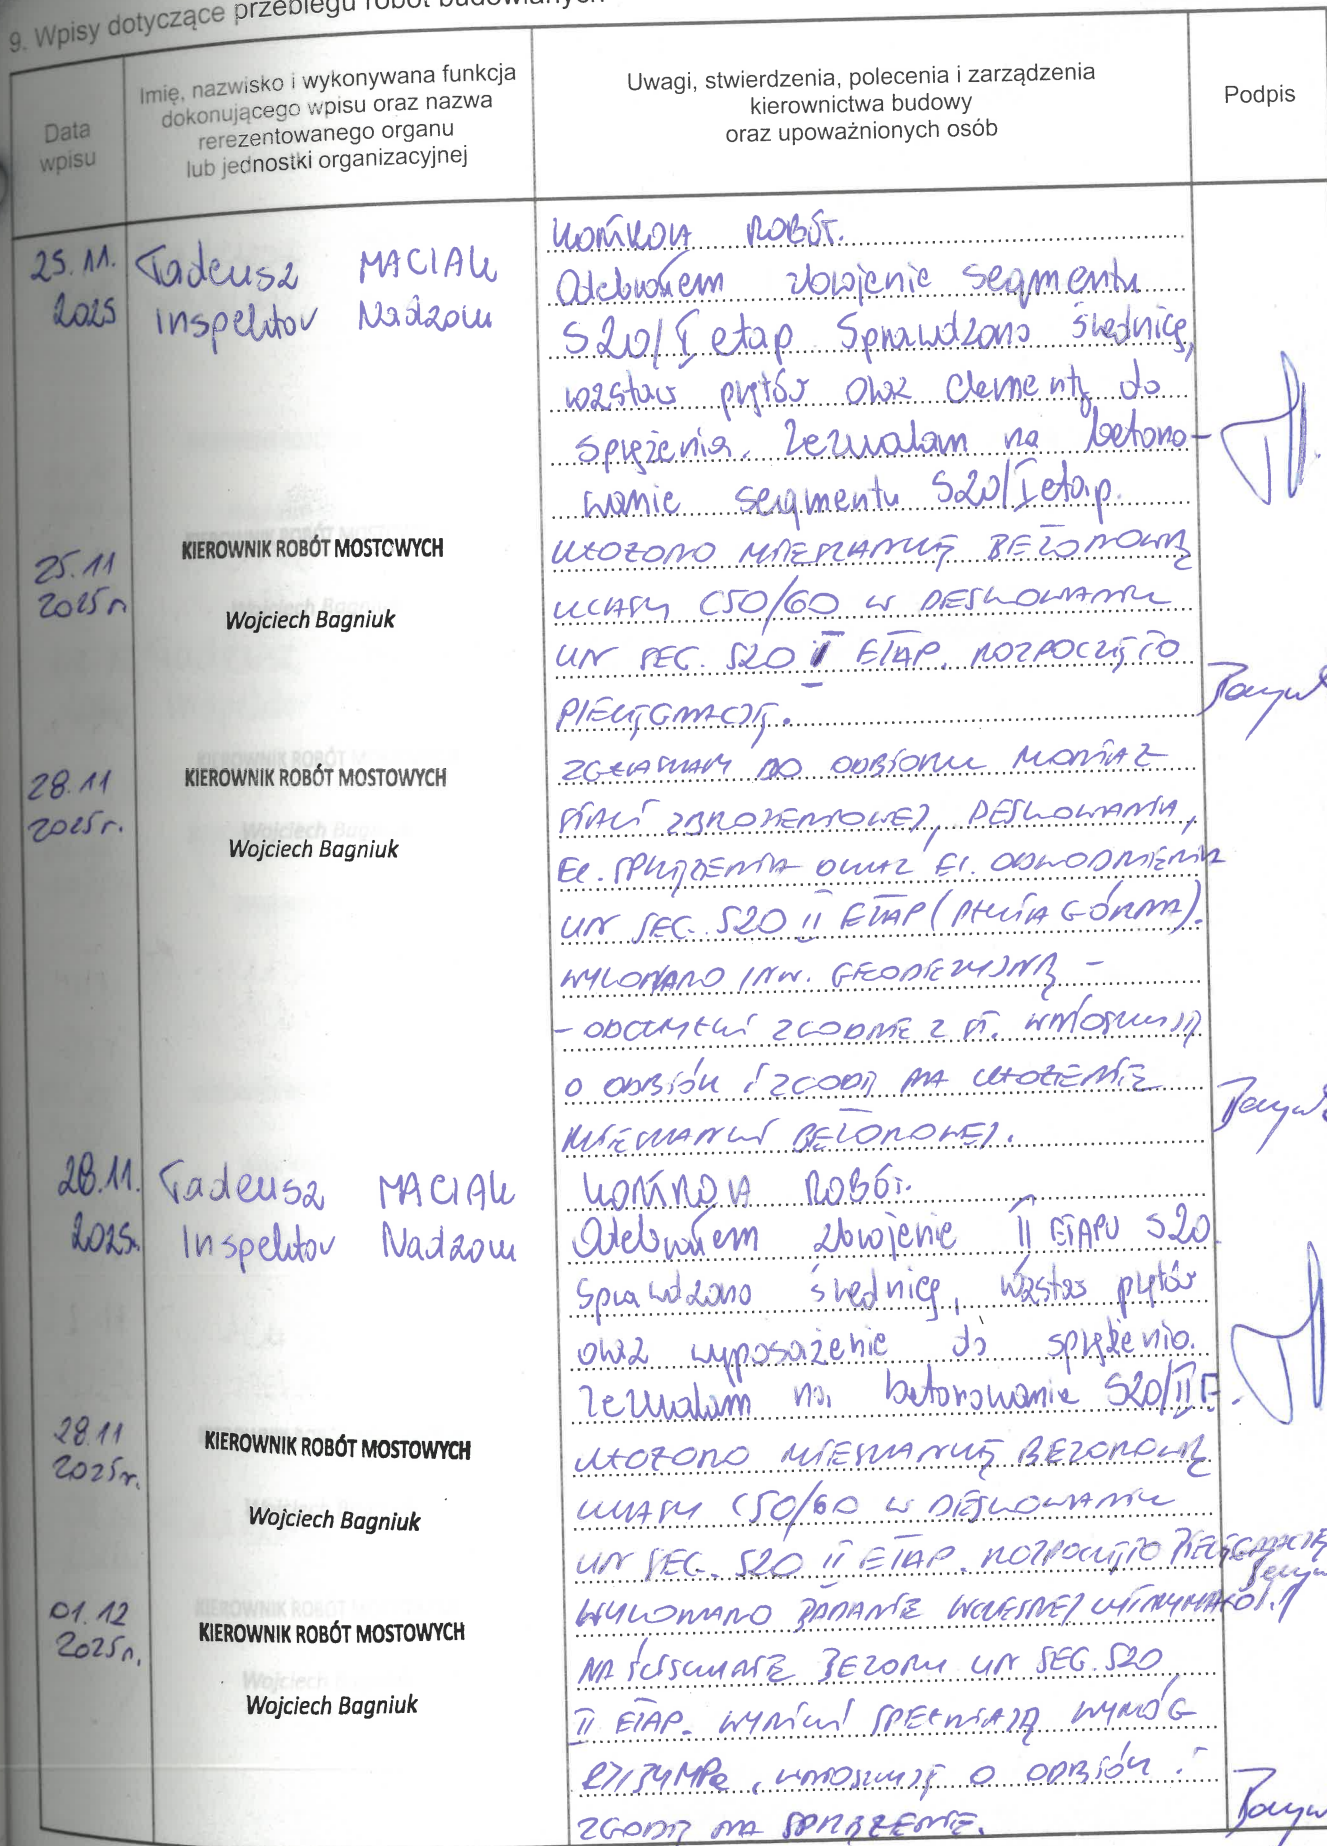 9. Wpisy dotyczące przebiegu robót budowlanych
Data
wpisu
Imię, nazwisko i wykonywana funkcja
dokonującego wpisu oraz nazwa
rerezentowanego organu
lub jednostki organizacyjnej
Uwagi, stwierdzenia, polecenia i zarządzenia
kierownictwa budowy
oraz upoważnionych osób
Podpis
25.11.
2025
Tadeusz MACIAK
Inspektor Nadzoru
KONTROLA ROBÓT.
Odebrałem zbrojenie segmentu
S20/I etap Sprawdzono średnicę,
rozstaw prętów oraz elementy do
sprężenia. Zezwalam na betono-
wanie segmentu S20/I etap.
25.11
2025r
KIEROWNIK ROBÓT MOSTOWYCH
Wojciech Bagniuk
UŁOŻONO MIESZANKĘ BETONOWĄ
KLASY C50/60 W DESKOWANIU
UN SEG. S20 I ETAP. ROZPOCZĘTO
PIELĘGNACJĘ.
28.11
2025r.
KIEROWNIK ROBÓT MOSTOWYCH
Wojciech Bagniuk
ZGŁASZAM DO ODBIORU MONTAŻ
STALI ZBROJENIOWEJ, DESKOWANIA,
EL. SPRĘŻENIA ORAZ EL. ODWODNIENIA
UN SEG. S20 II ETAP (PŁYTA GÓRNA).
WYKONANO INW. GEODEZYJNĄ -
- ODCHYŁKI ZGODNE Z ST. WNIOSKUJĘ
O ODBIÓR I ZGODĘ NA UŁOŻENIE
MIESZANKI BETONOWEJ.
28.11.
2025r.
Tadeusz MACIAK
Inspektor Nadzoru
KONTROLA ROBÓT.
Odebrałem zbrojenie II ETAPU S20
Sprawdzono średnicę, rozstaw prętów
oraz wyposażenie do sprężenia.
Zezwalam na betonowanie S20/II E.
28.11
2025r.
KIEROWNIK ROBÓT MOSTOWYCH
Wojciech Bagniuk
UŁOŻONO MIESZANKĘ BETONOWĄ
KLASY C50/60 W DESKOWANIU
UN SEG. S20 II ETAP. ROZPOCZĘTO PIELĘGNACJĘ
01.12
2025r.
KIEROWNIK ROBÓT MOSTOWYCH
Wojciech Bagniuk
WYKONANO BADANIE WCZESNEJ WYTRZYMAŁOŚCI
NA ŚCISKANIE BETONU UN SEG. S20
II ETAP. WYNIKI SPEŁNIAJĄ WYMÓG
R7/34MPa, WNIOSKUJĘ O ODBIÓR I
ZGODĘ NA SPRĘŻENIE.